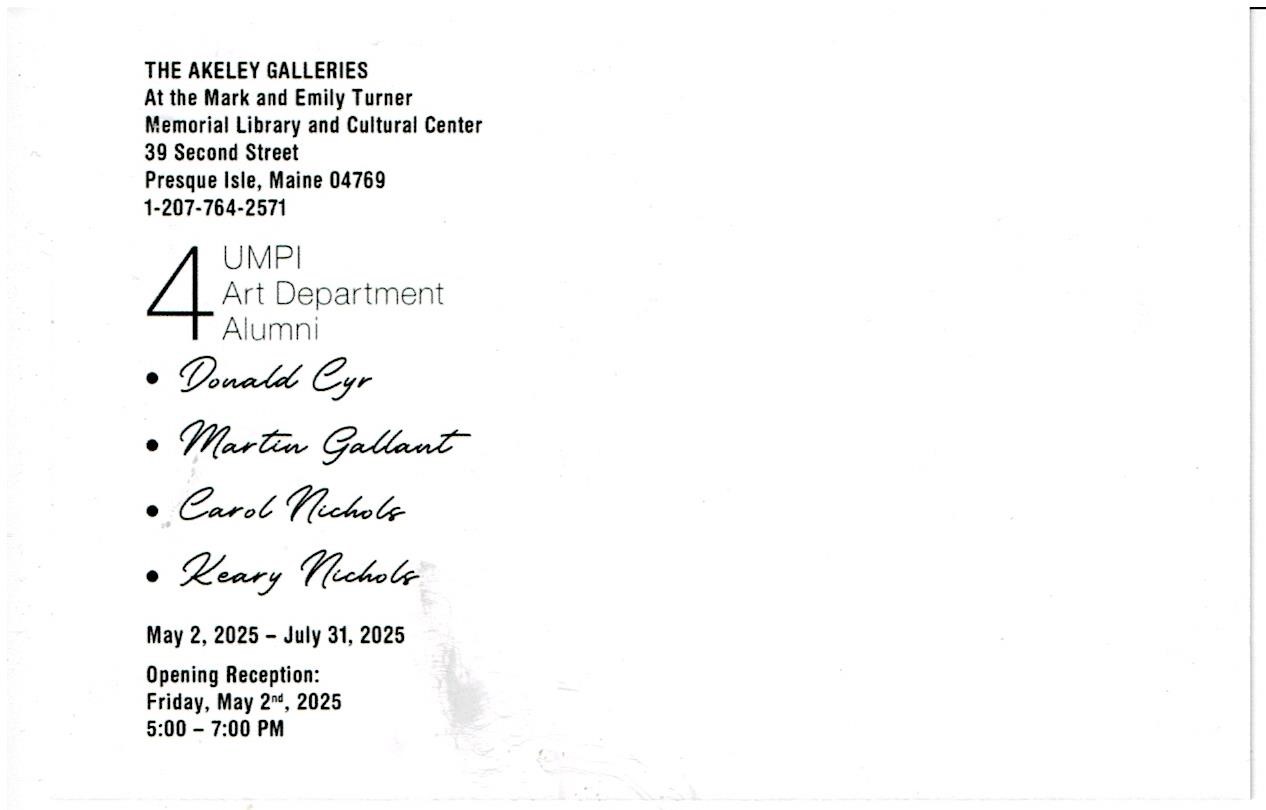 THE AKELEY GALLERIES
At the Mark and Emily Turner
Memorial Library and Cultural Center
39 Second Street
Presque Isle, Maine 04769
1-207-764-2571
4 UMPI
Art Department
Alumni
• Donald Cyr
• Martin Gallant
• Carol Nichols
• Keary Nichols
May 2, 2025 – July 31, 2025
Opening Reception:
Friday, May 2nd, 2025
5:00 – 7:00 PM